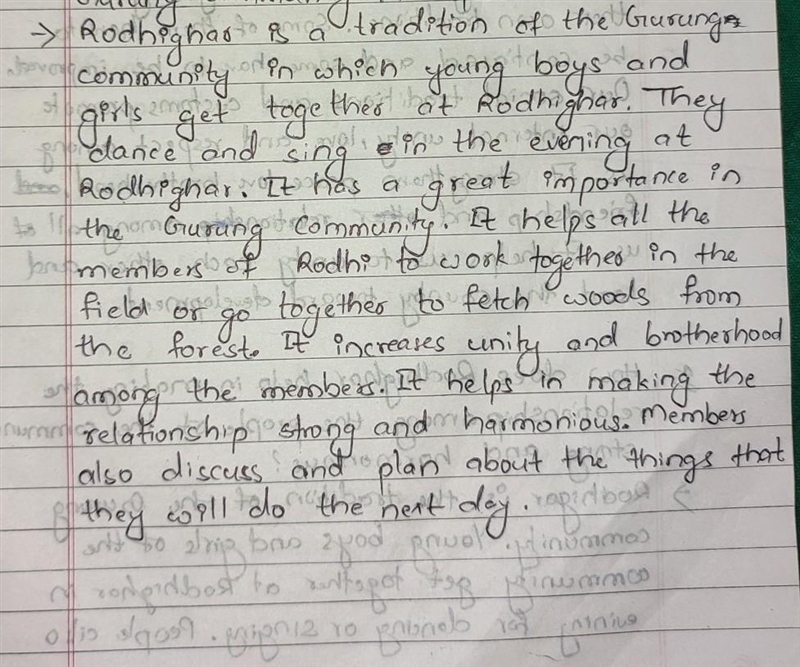 → Rodhighar is a tradition of the Gurung
community in which young boys and
girls get together at Rodhighar. They
dance and sing in the evening at
Rodhighar. It has a great importance in
the Gurung Community. It helps all the
members of Rodhi to work together in the
field or go together to fetch woods from
the forest. It increases unity and brotherhood
among the members. It helps in making the
relationship strong and harmonious. Members
also discuss and plan about the things that
they will do the next day.